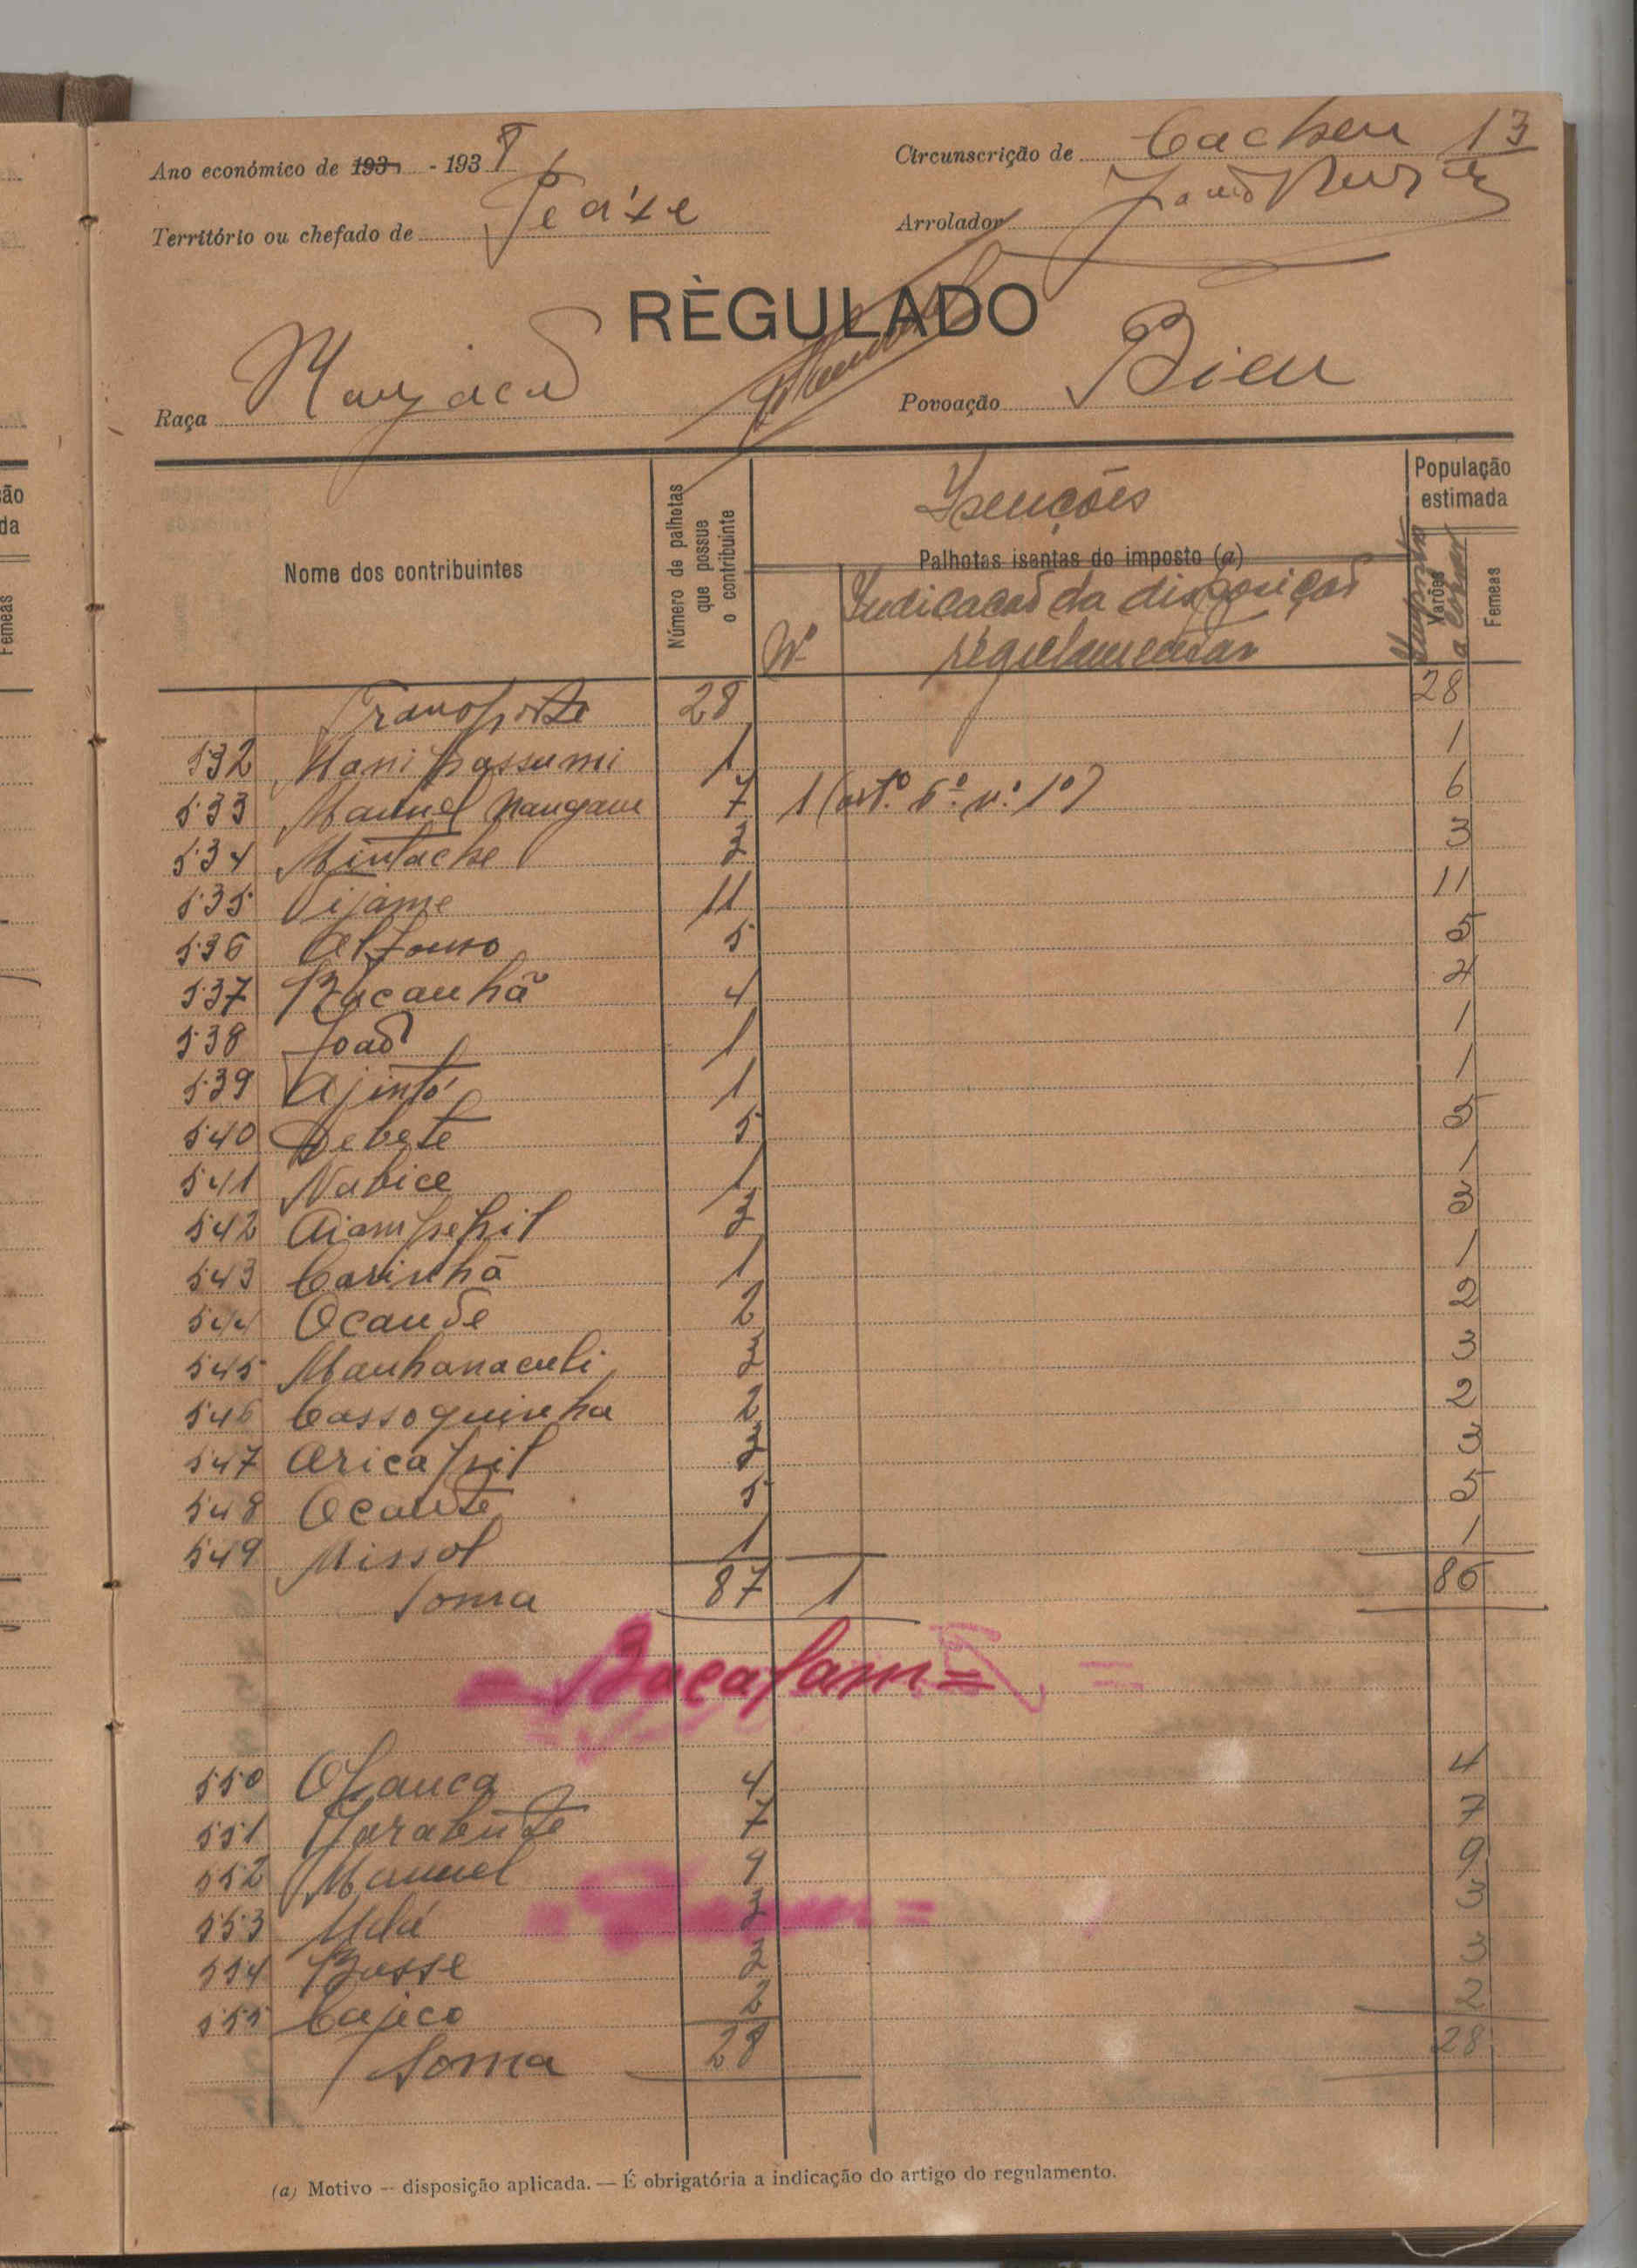 13
Ano económico de 193 - 1938 Circunscrição de Cacheu
Território ou chefado de Arrolador João
RÈGULADO
Raça Manjaco Povoação Bieu
Nome dos contribuintes
Número de palhotas que possue o contribuinte
Isenções
Palhotas isentas do imposto (a)
Nº Indicação da disposição regulamentar
População estimada
Varões a cobrar
Femeas
Transporte 28 28
532 Mani 1 1
533 Manuel Nangam 7 1 (artº 6º nº 1º) 6
534 Mintache 3 3
535 Tijame 11 11
536 Afonso 5 5
537 Bacanhã 4 4
538 João 1 1
539 Ajintó 1 1
540 Debete 5 5
541 Nabice 1 1
542 Aiampepil 3 3
543 Carinhã 1 1
544 Ocande 2 2
545 Manhanaculi 3 3
546 Cassoquinha 2 2
547 Aricapil 3 3
548 Ocante 5 5
549 Missol 1 1
Soma 87 1 86
550 4 4
551 7 7
552 Manuel 9 9
553 3 3
554 Busse 3 3
555 Cajeco 2 2
Soma 28 28
(a) Motivo — disposição aplicada. — É obrigatória a indicação do artigo do regulamento.